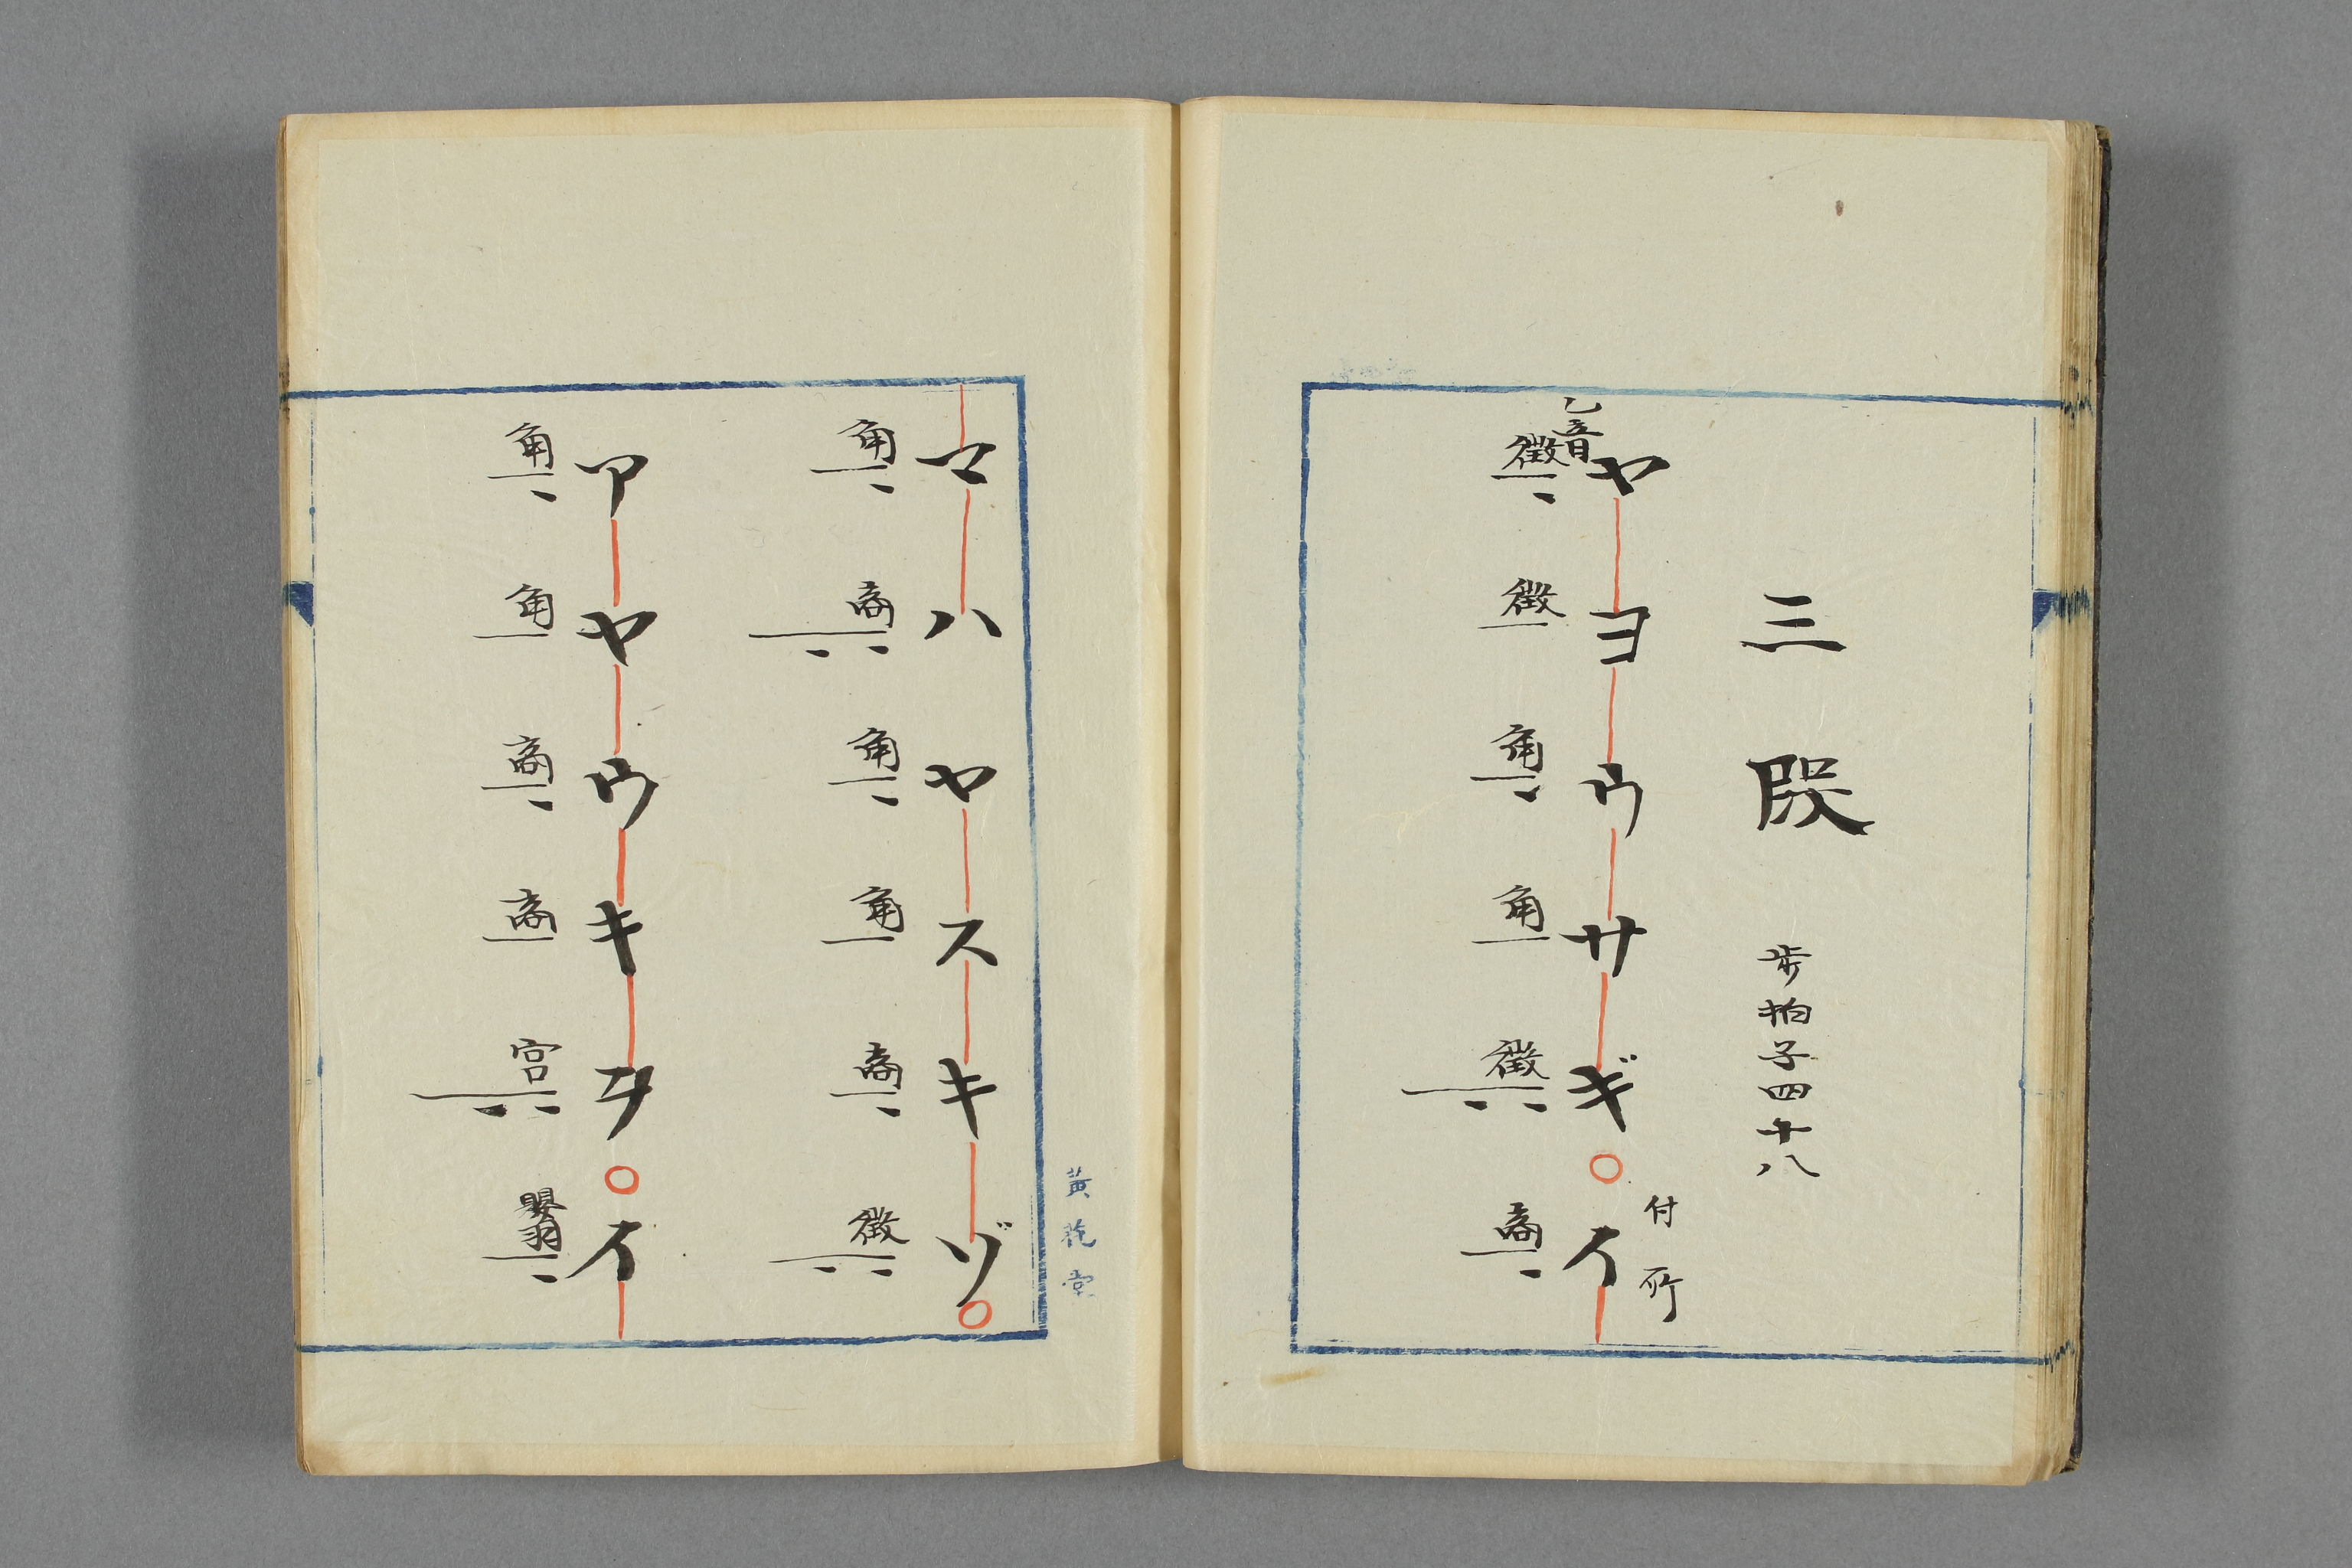 三段 歩拍子四十八
付所
ヤヨウサギ○イ
乙音
徴徴角角徴商
黄花堂
マハヤスキゾ○
角商角角商徴
アヤウキヲ○イ
角角商商宮嬰羽